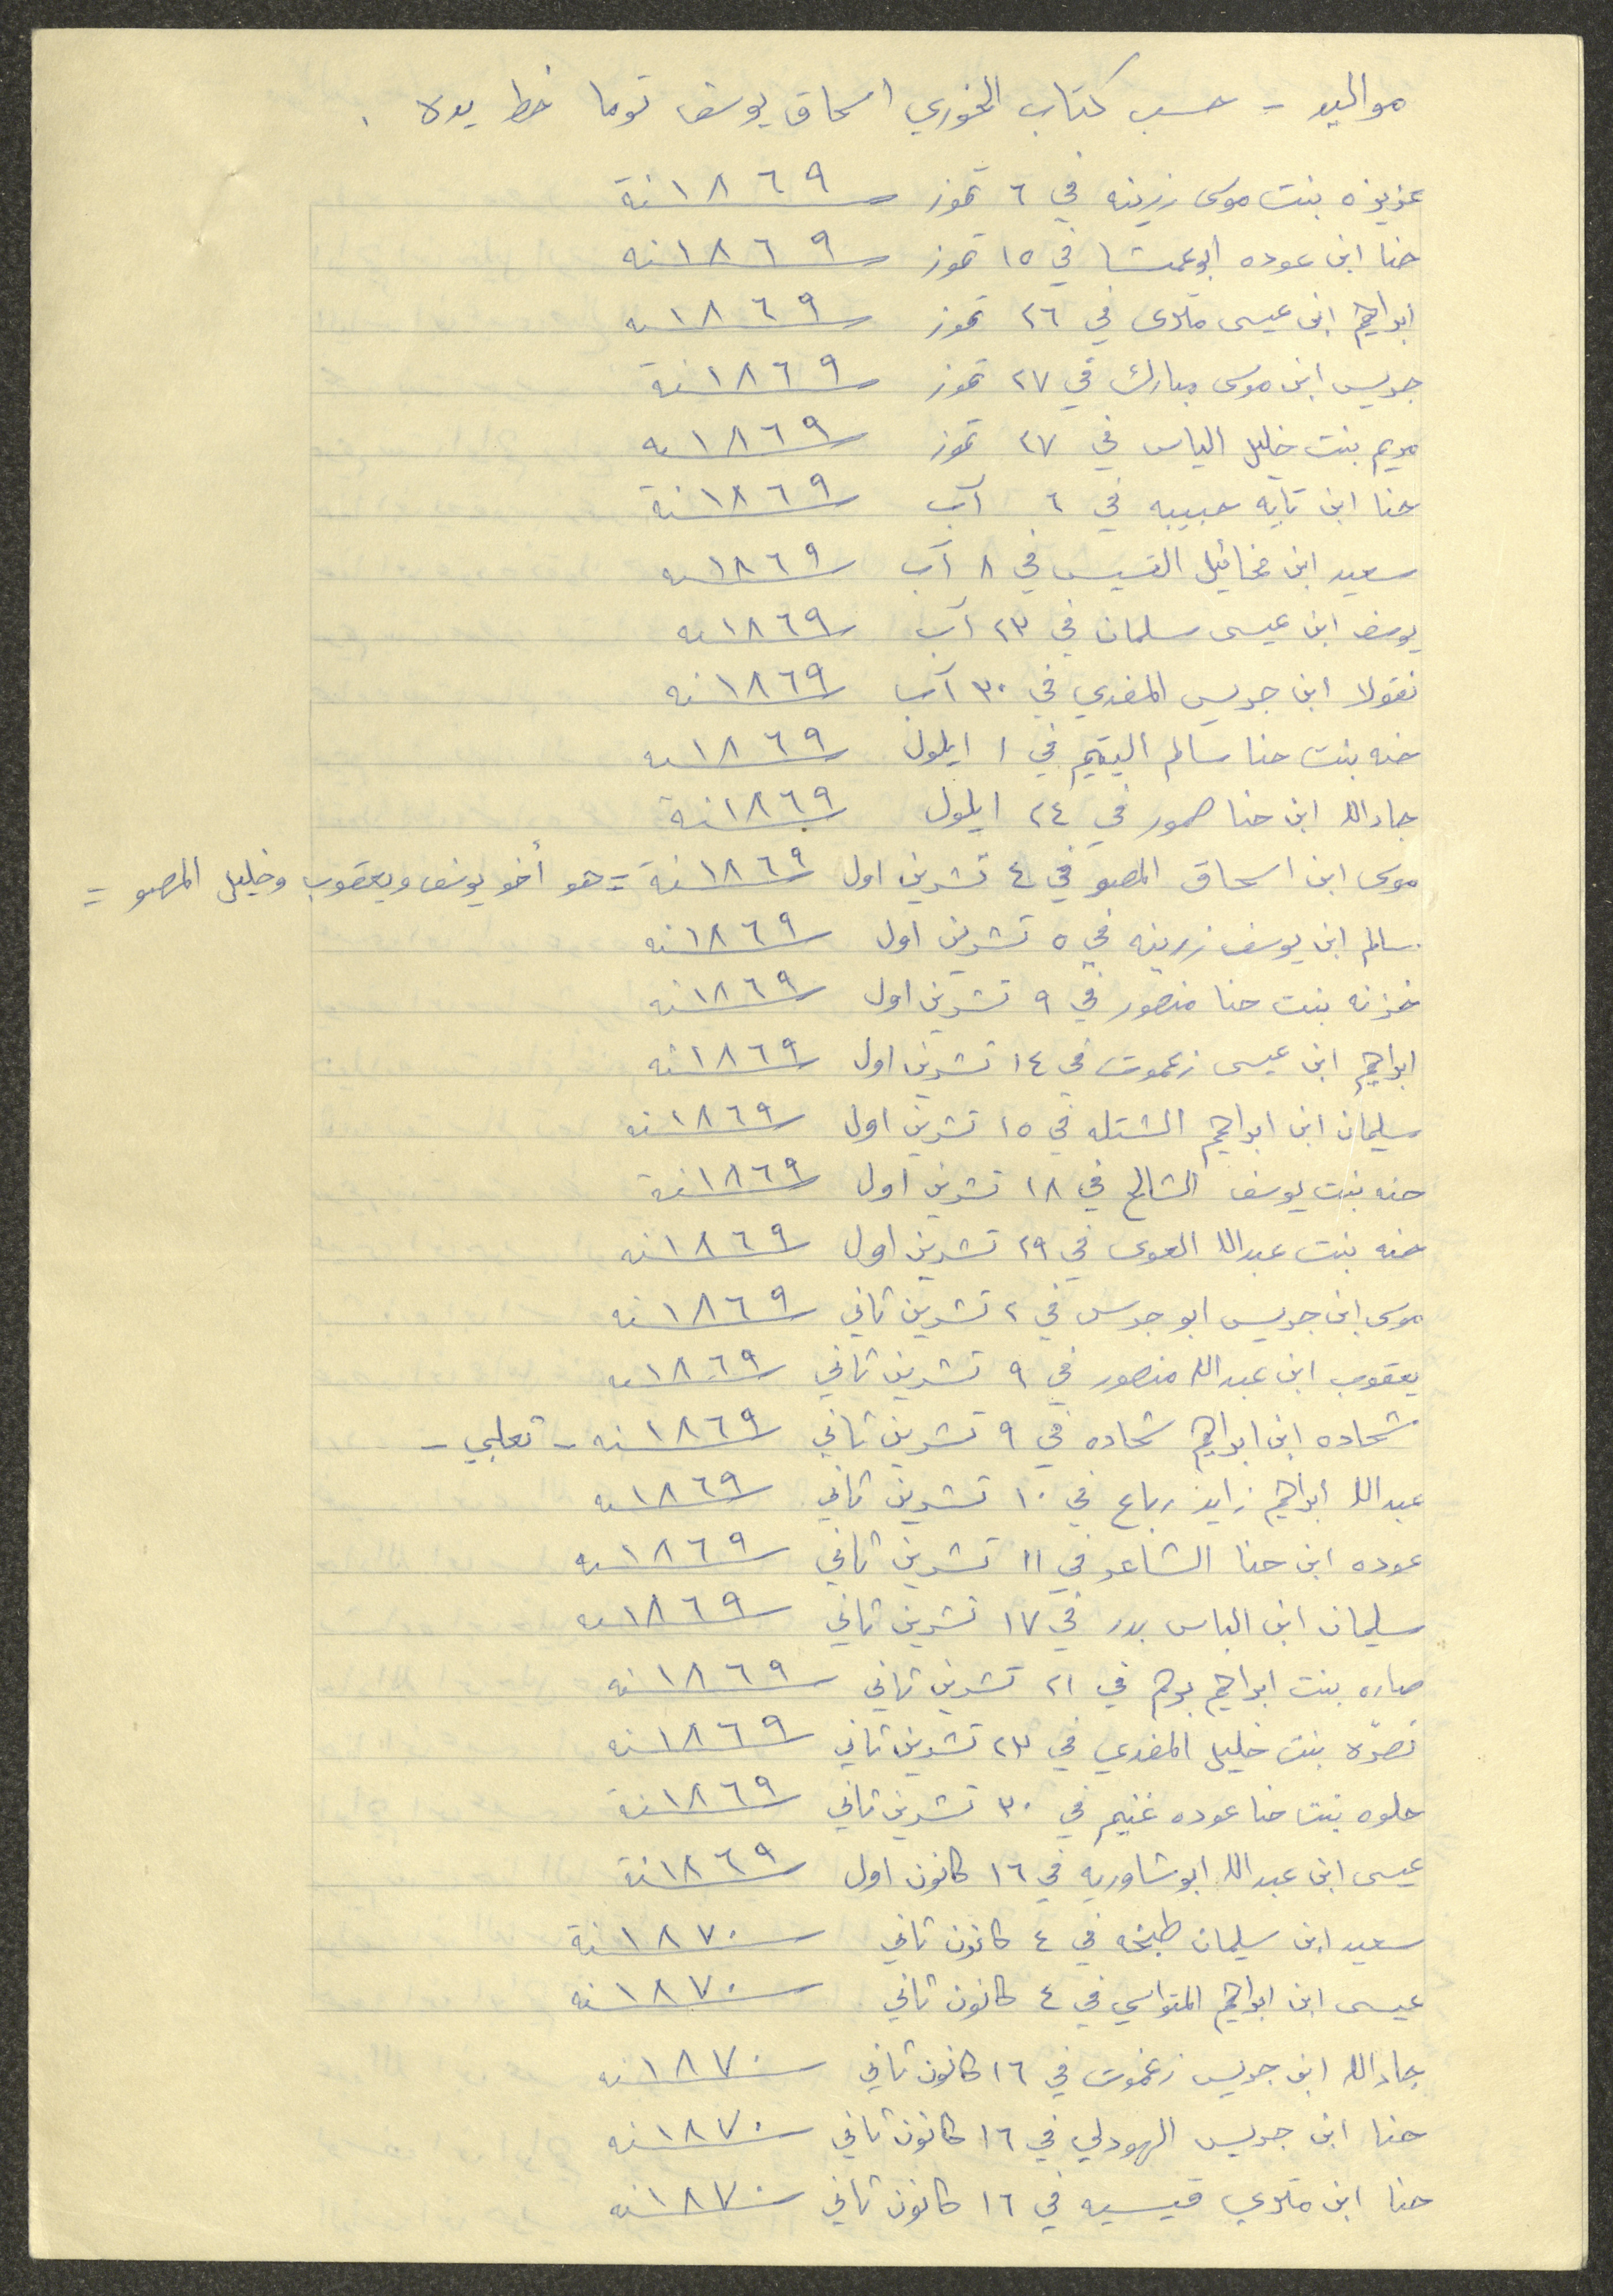 مواليد - حسب كتاب الخوري اسحاق يوسف توما خط يده .
عزيزه بنت موسى زرينه في ٦ تموز سنة ١٨٦٩
حنا ابن عوده ابوعمشا في ١٥ تموز سنه ١٨٦٩
ابراهيم ابن عيسى متري في ٢٦ تموز سنه ١٨٦٩
جريس ابن موسى مبارك في ٢٧ تموز سنة ١٨٦٩
مريم بنت خليل الياس في ٢٧ تموز سنه ١٨٦٩
حنا ابن تايه حبيبه في ٦ آب سنة ١٨٦٩
سعيد ابن مخائيل القسيس في ٨ آب سنه ١٨٦٩
يوسف ابن عيسى سلمان في ٢٣ آب سنه ١٨٦٩
نقولا ابن جريس المغدي في ٣٠ آب سنه ١٨٦٩
حنه بنت حنا سالم اليتيم في ١ ايلول سنه ١٨٦٩
جادالله ابن حنا صمور في ٢٤ ايلول سنة ١٨٦٩
موسى ابن اسحاق المصو في ٤ تشرين اول سنة ١٨٦٩ = هو أخو يوسف ويعقوب وخليل المصو =
سالم ابن يوسف زرينه في ٥ تشرين اول سنه ١٨٦٩
خزنه بنت حنا منصور في ٩ تشرين اول سنه ١٨٦٩
ابراهيم ابن عيسى زعموت في ١٤ تشرين اول سنه ١٨٦٩
سليمان ابن ابراهيم الشتله في ١٥ تشرين اول سنه ١٨٦٩
حنه بنت يوسف الشالح في ١٨ تشرين اول سنة ١٨٦٩
حنه بنت عبدالله العوى في ٢٩ تشرين اول سنه ١٨٦٩
موسى ابن جريس ابو جرس في ٢ تشرين ثاني سنه ١٨٦٩
يعقوب ابن عبدالله منصور في ٩ تشرين ثاني سنه ١٨٦٩
شحاده ابن ابراهيم شحاده في ٩ تشرين ثاني سنه ١٨٦٩ - تعلبي -
عبدالله ابراهيم زايد رباع في ١٠ تشرين ثاني سنه ١٨٦٩
عوده ابن حنا الشاعر في ١١ تشرين ثاني سنه ١٨٦٩
سليمان ابن الياس بدر في ١٧ تشرين ثاني سنه ١٨٦٩
صاره بنت ابراهيم برهم في ٢١ تشرين ثاني سنه ١٨٦٩
نصرّه بنت خليل المغدي في ٢٣ تشرين ثاني سنه ١٨٦٩
حلوه بنت حنا عوده غنيم في ٣٠ تشرين ثاني سنة ١٨٦٩
عيسى ابن عبدالله ابوشاوريه في ١٦ كانون اول سنة ١٨٦٩
سعيد ابن سليمان طبخه في ٤ كانون ثاني سنة ١٨٧٠
عيسى ابن ابراهيم المتواسي في ٤ كانون ثاني سنه ١٨٧٠
جادالله ابن جريس زغموت في ١٦ كانون ثاني سنه ١٨٧٠
حنا ابن جريس الهودلي في ١٦ كانون ثاني سنه ١٨٧٠
حنا ابن متري قيسيه في ١٦ كانون ثاني سنه ١٨٧٠